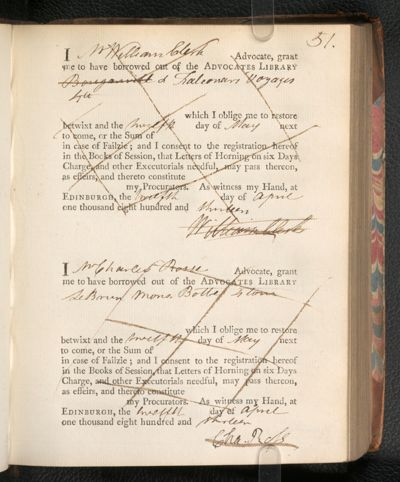 51.
I Mr William Clerk Advocate, grant
me to have borrowed out of the ADVOCATES LIBRARY
Bougainvill & Falconars Voyages
which I oblige me to restore
betwixt and the twelfth day of May next
to come, or the Sum of
in case of Failzie; and I consent to the registration hereof
in the Books of Session, that Letters of Horning on six Days
Charge, and other Executorials needful, may pass thereon,
as effeirs, and thereto constitute
my Procurators. As witness my Hand, at
EDINBURGH, the twelfth day of April
one thousand eight hundred and thirteen
William Clerk
I Mr Charles Rosse Advocate, grant
me to have borrowed out of the ADVOCATES LIBRARY
LeBrun
which I oblige me to restore
betwixt and the twelfth day of May next
to come, or the Sum of
in case of Failzie; and I consent to the registration hereof
in the Books of Session, that Letters of Horning on six Days
Charge, and other Executorials needful, may pass thereon,
as effeirs, and thereto constitute
my Procurators. As witness my Hand, at
EDINBURGH, the twelfth day of April
one thousand eight hundred and thirteen
Cha. Ross